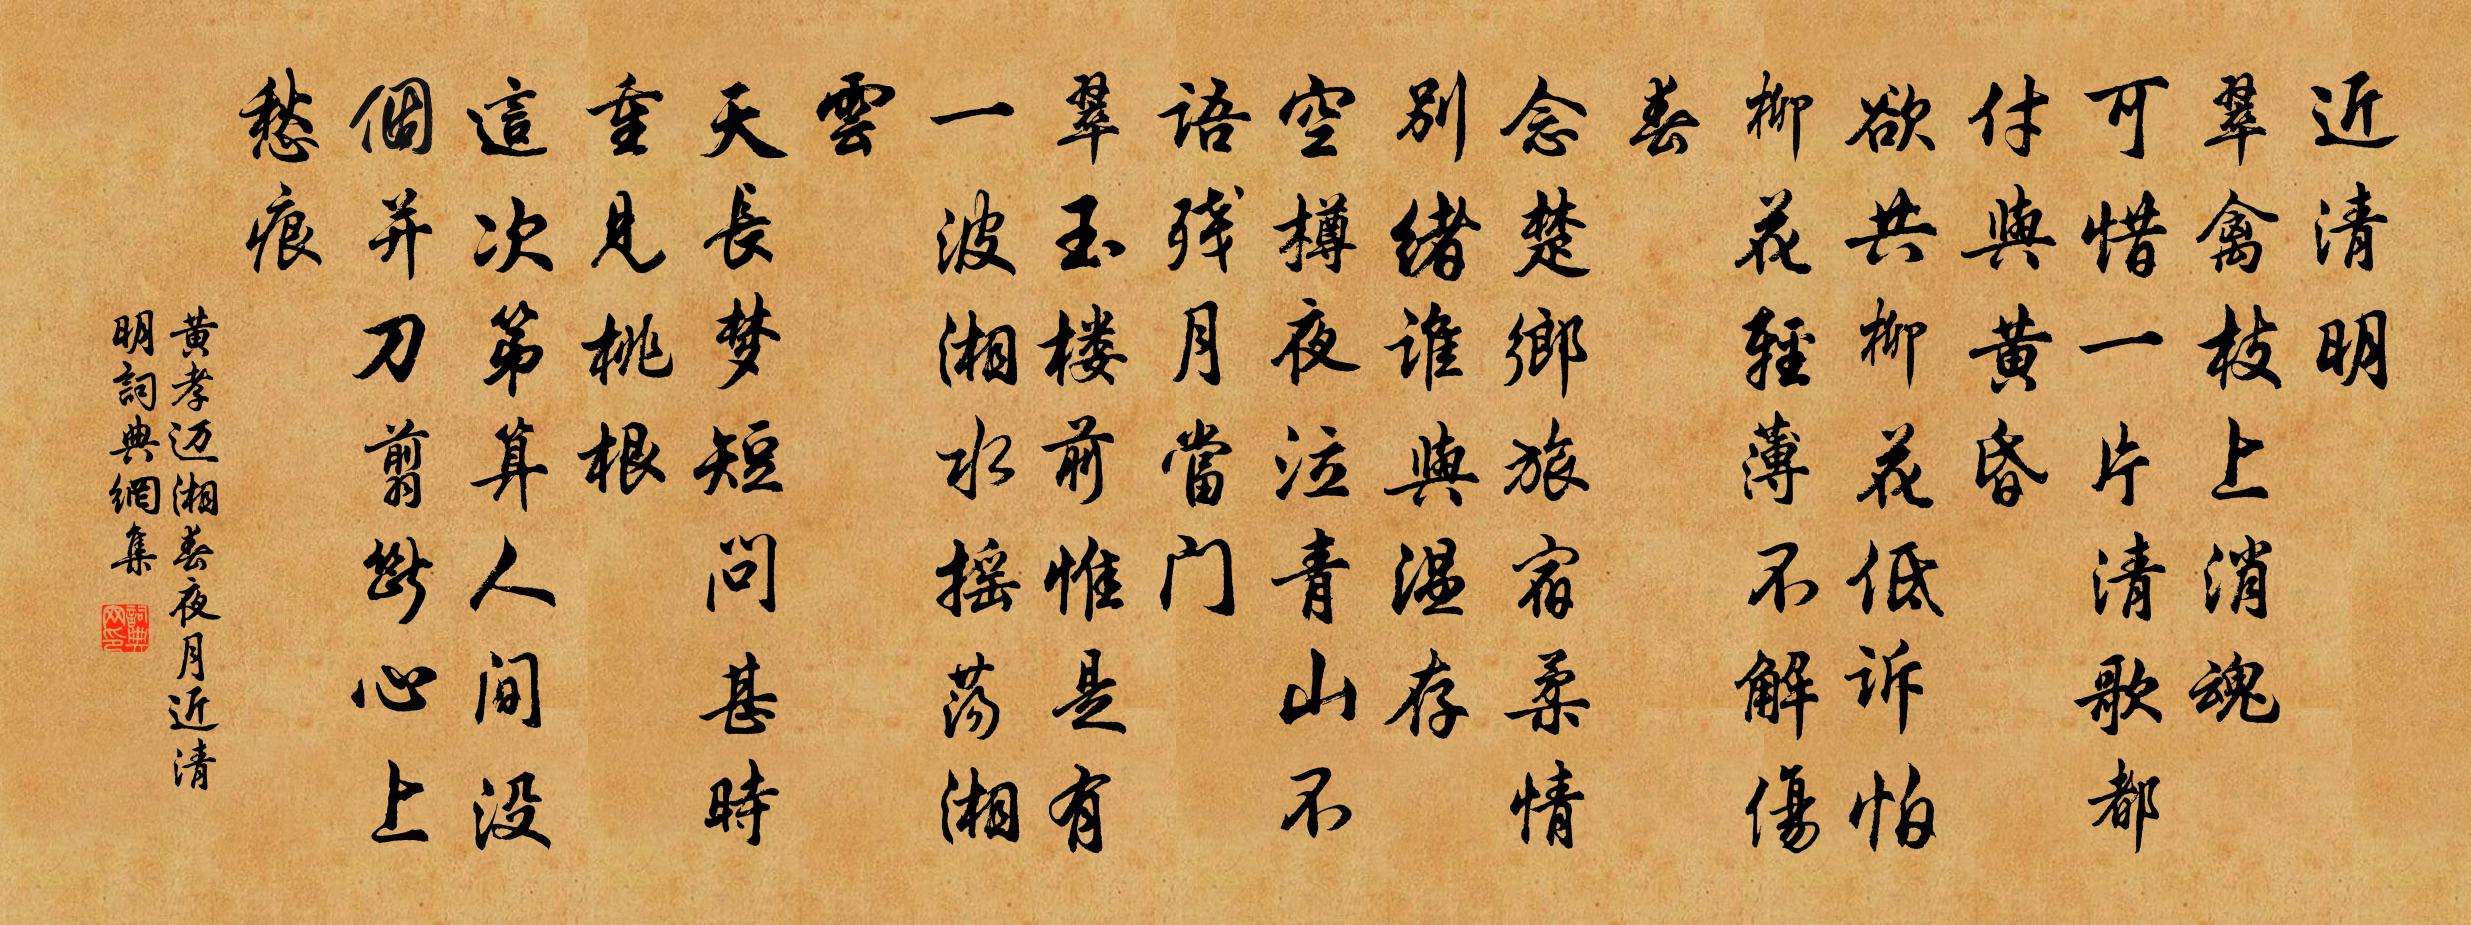 近清明
翠禽枝上消魂
可惜一片清歌都
付與黄昏
欲共柳花低诉怕
柳花輕薄不解傷
春
念楚鄉旅宿柔情
别緒谁與温存
空樽夜泣青山不
语残月當门
翠玉楼前惟是有
一波湘水摇荡湘
雲
天長梦短问甚時
重見桃根
這次第算人间没
個并刀剪斷心上
愁痕
黄孝迈湘春夜月近清
明詞典網集
詞典
网印